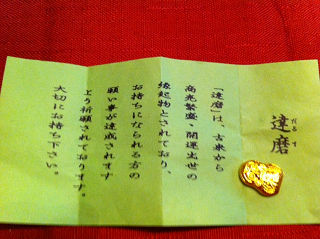 達磨
だるま
「達磨」は、古来から
商売繁盛・開運出世の
縁起物とされており、
お持ちになられる方の
願い事が達成されます
よう祈願されております。
大切にお持ち下さい。